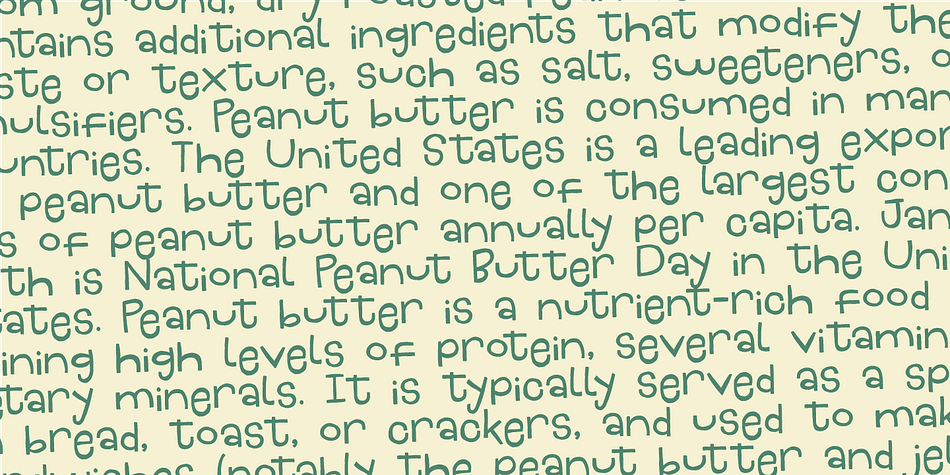 om ground, dry roasted
ntains additional ingredients that modify the
ste or texture, such as salt, sweeteners, o
nulsifiers. Peanut butter is consumed in man
untries. The United States is a leading expor
peanut butter and one of the largest con
s of peanut butter annually per capita. Jan
th is National Peanut Butter Day in the Uni
tates. Peanut butter is a nutrient-rich food
ining high levels of protein, several vitamin
etary minerals. It is typically served as a sp
bread, toast, or crackers, and used to mak
ndwiches (notably the peanut butter and je